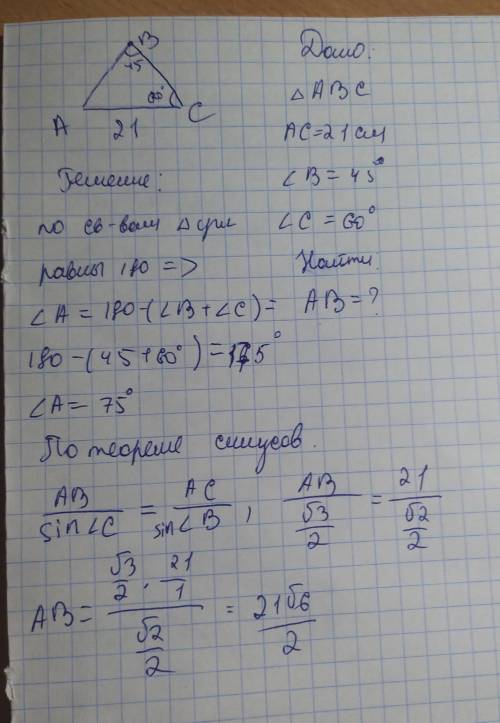 B
45
60°
A
21
C
Дано:
△ABC
AC=21 см
∠B = 45°
∠C = 60°
Найти:
AB = ?
Решение:
по св-вам △ углы
равны 180 =>
∠A = 180-(∠B+∠C)=
180-(45+60°)=75°
∠A = 75°
По теореме синусов.
AB/sin∠C = AC/sin∠B , AB/(√3/2) = 21/(√2/2)
AB = (√3/2 · 21/1)/(√2/2) = 21√6/2